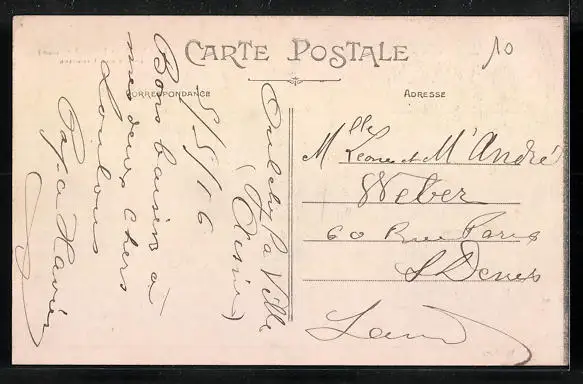 CARTE POSTALE
CORRESPONDANCE
ADRESSE
10
Oulchy la Ville
(Aisne)
5/5/16
Bons baisers à
mes deux chers
Loulous
Papa Xavier
Mlle Léone et M' André
Weber
60 Rue Paris
St Denis